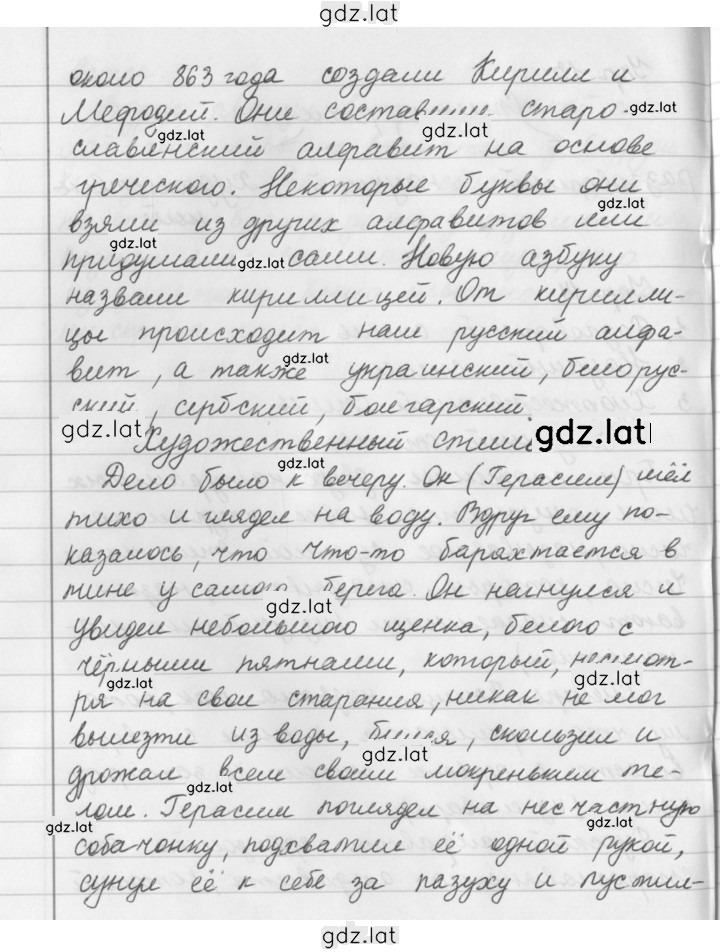 gdz.lat
около 863 года создали Кирилл и
Мефодий. Они составили старо-
gdz.lat
gdz.lat
gdz.lat
славянский алфавит на основе
греческого. Некоторые буквы они
взяли из других алфавитов или
gdz.lat
придумали сами. Новую азбуку
gdz.lat
назвали кириллицей. От кирилли-
цы происходит наш русский алфа-
gdz.lat
вит, а также украинский, белорус-
ский, сербский, болгарский.
gdz.lat
gdz.lat
Художественный стиль
gdz.lat
Дело было к вечеру. Он (Герасим) шёл
тихо и глядел на воду. Вдруг ему по-
казалось, что что-то барахтается в
тине у самого берега. Он нагнулся и
gdz.lat
увидел небольшого щенка, белого с
чёрными пятнами, который, несмот-
gdz.lat
gdz.lat
ря на свои старания, никак не мог
вылезти из воды, бился, скользил и
gdz.lat
дрожал всем своим мокреньким те-
gdz.lat
лом. Герасим поглядел на несчастную
gdz.lat
gdz.lat
собачонку, подхватил её одной рукой,
сунул её к себе за пазуху и пустил-
gdz.lat